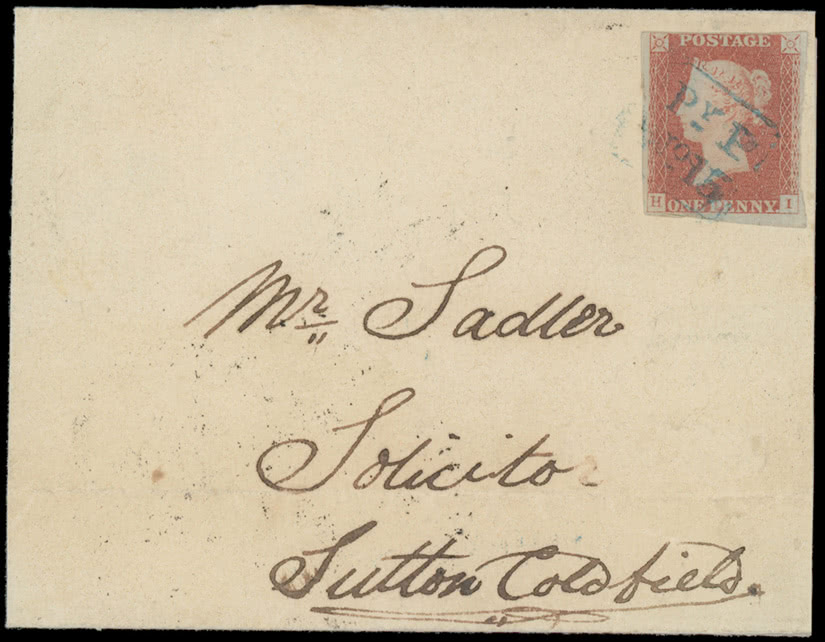 POSTAGE
Py P
H ONE PENNY. I
Mr Sadler
Solicitor
Sutton Coldfield.